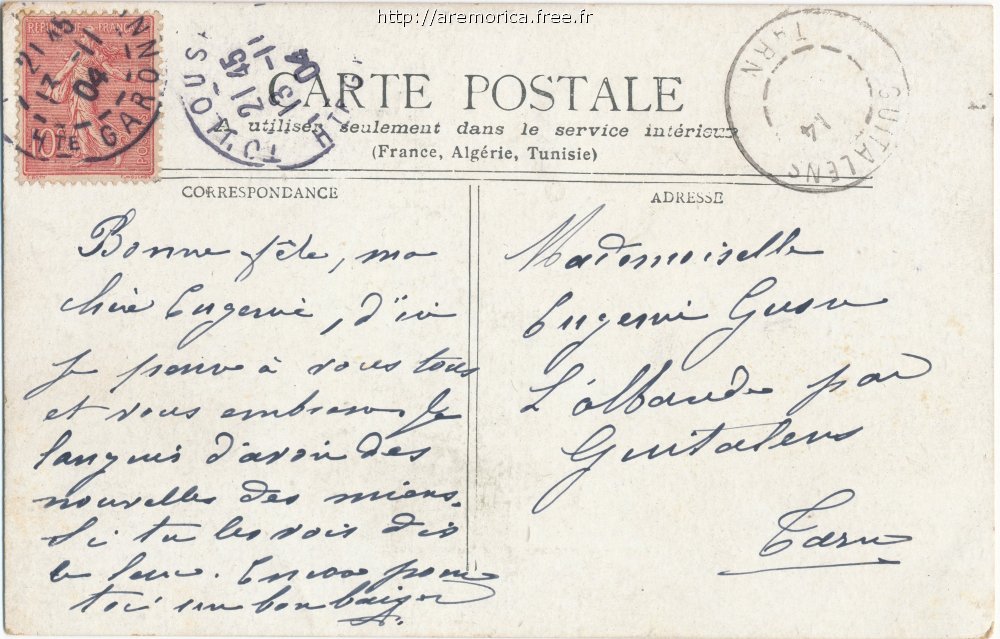 http://aremorica.free.fr
RÉPUBLIQUE FRANÇAISE
21 45
13 -11
04
HTE GARONNE
TOULOUSE
21 45
13 -11
04
HTE G
GUITALENS
TARN
14
CARTE POSTALE
A utiliser seulement dans le service intérieur
(France, Algérie, Tunisie)
CORRESPONDANCE
Bonne fête, ma
chère Eugenie, d'ici
je pense à vous tous
et vous embrasse. Je
languis d'avoir des
nouvelles des miens.
Si tu les vois dis
le leur. Encore pour
toi un bon baiser
ADRESSE
Mademoiselle
Eugenie
L'albarede par
Guitalens
Tarn